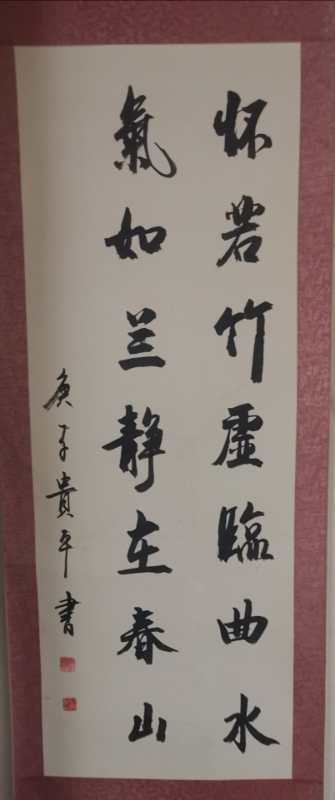 怀若竹虚臨曲水
氣如兰静在春山
庚子貴平書